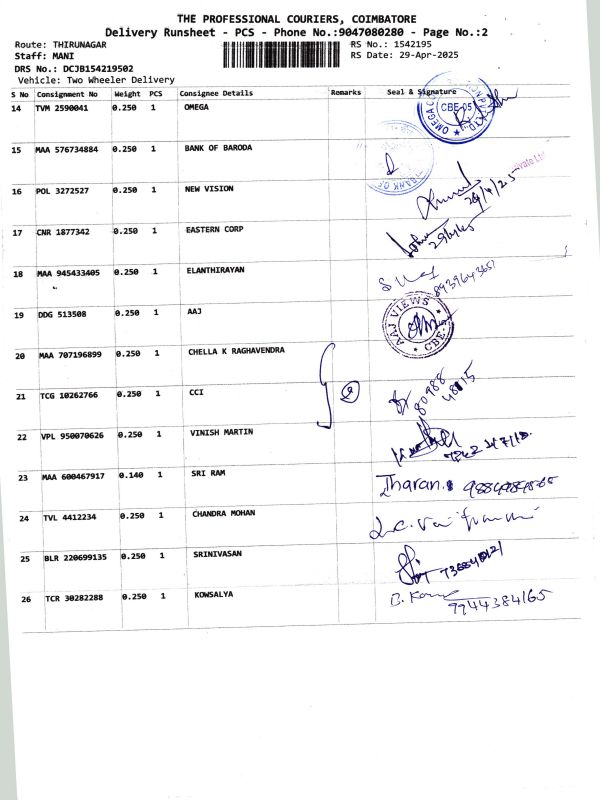 THE PROFESSIONAL COURIERS, COIMBATORE
Delivery Runsheet - PCS - Phone No.:9047080280 - Page No.:2
Route: THIRUNAGAR RS No.: 1542195
Staff: MANI RS Date: 29-Apr-2025
DRS No.: DCJB154219502
Vehicle: Two Wheeler Delivery
S No Consignment No Weight PCS Consignee Details Remarks Seal & Signature
14 TVM 2590041 0.250 1 OMEGA CBE-05
15 MAA 576734884 0.250 1 BANK OF BARODA BANK OF
16 POL 3272527 0.250 1 NEW VISION private Ltd 29/4/25
17 CNR 1877342 0.250 1 EASTERN CORP
18 MAA 945433405 0.250 1 ELANTHIRAYAN
19 DDG 513508 0.250 1 AAJ AAJ VIEWS CBE
20 MAA 707196899 0.250 1 CHELLA K RAGHAVENDRA
21 TCG 10262766 0.250 1 CCI 80988 48815
22 VPL 950070626 0.250 1 VINISH MARTIN
23 MAA 600467917 0.140 1 SRI RAM Tharan.
24 TVL 4412234 0.250 1 CHANDRA MOHAN
25 BLR 220699135 0.250 1 SRINIVASAN
26 TCR 30282288 0.250 1 KOWSALYA 9944384165